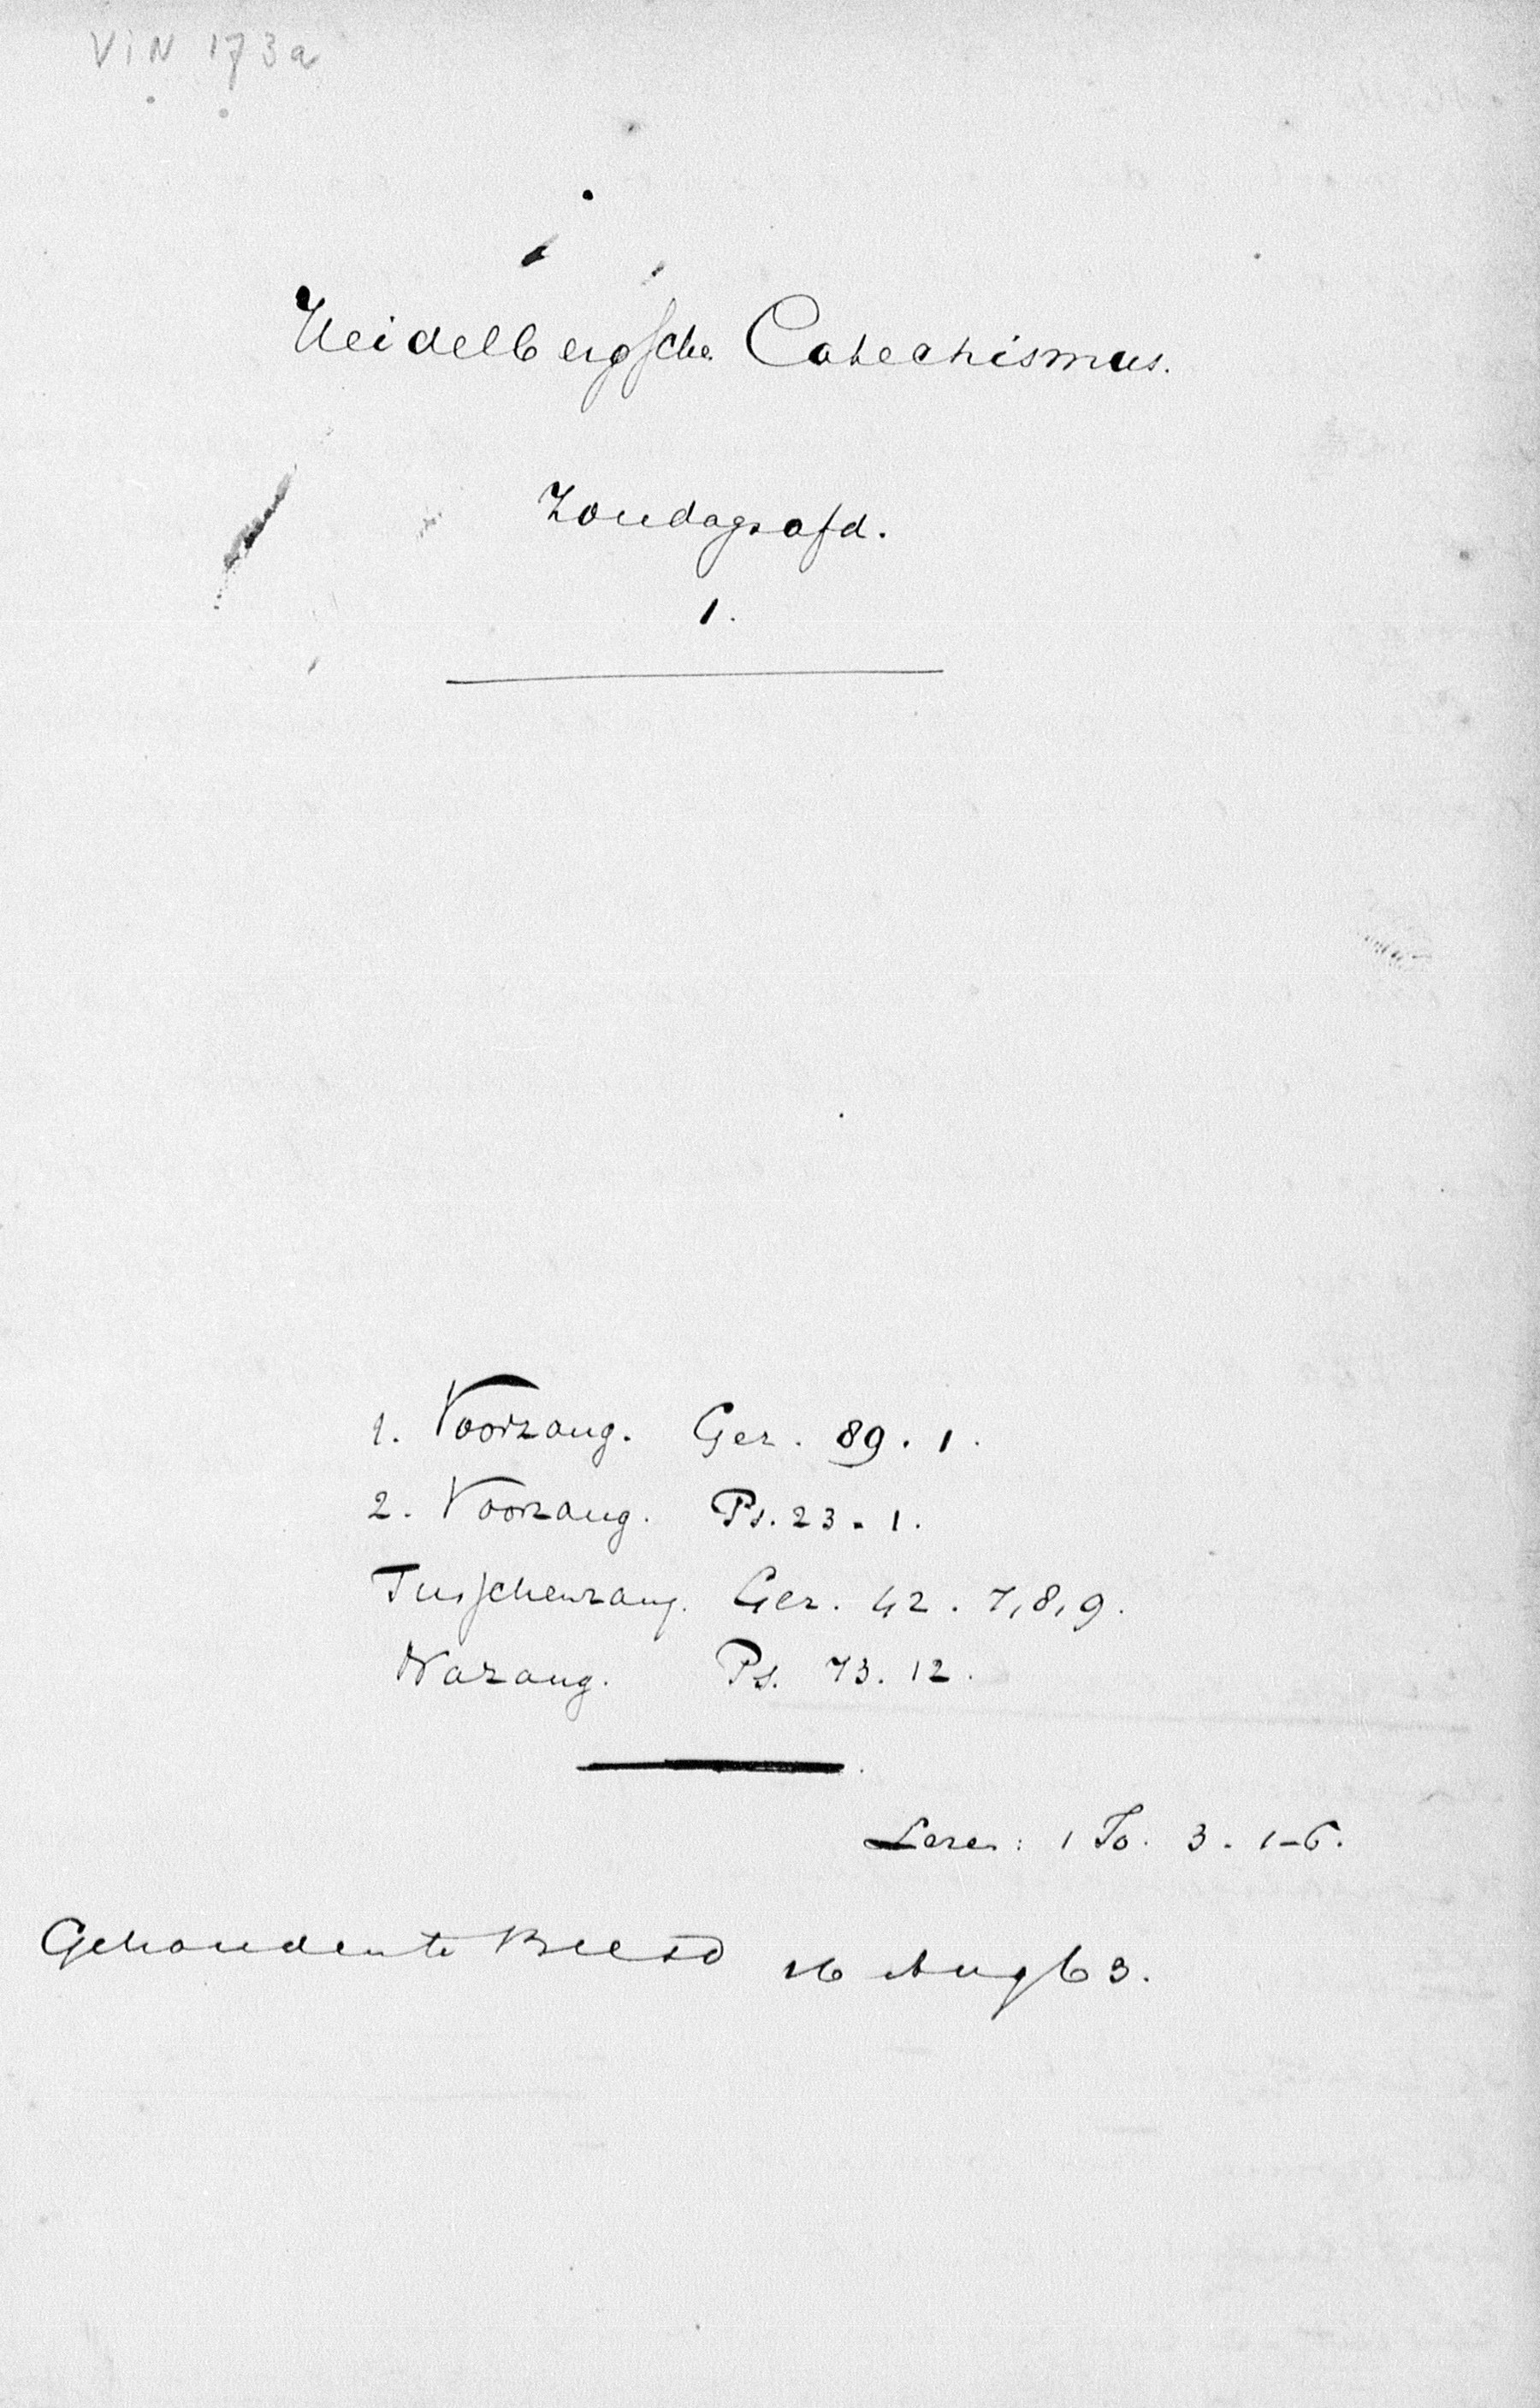 VIN 173a
Heidelbergsche Catechismus.
Zondagsafd.
1.
1. Voorzang. Gez. 89. 1.
2. Voorzang. Ps. 23. 1.
Tusschenzang. Gez. 42. 7, 8, 9.
Nazang. Ps. 73. 12.
Lezen: 1 Jo. 3. 1-6.
Gehouden te Beesd 16 Aug 63.